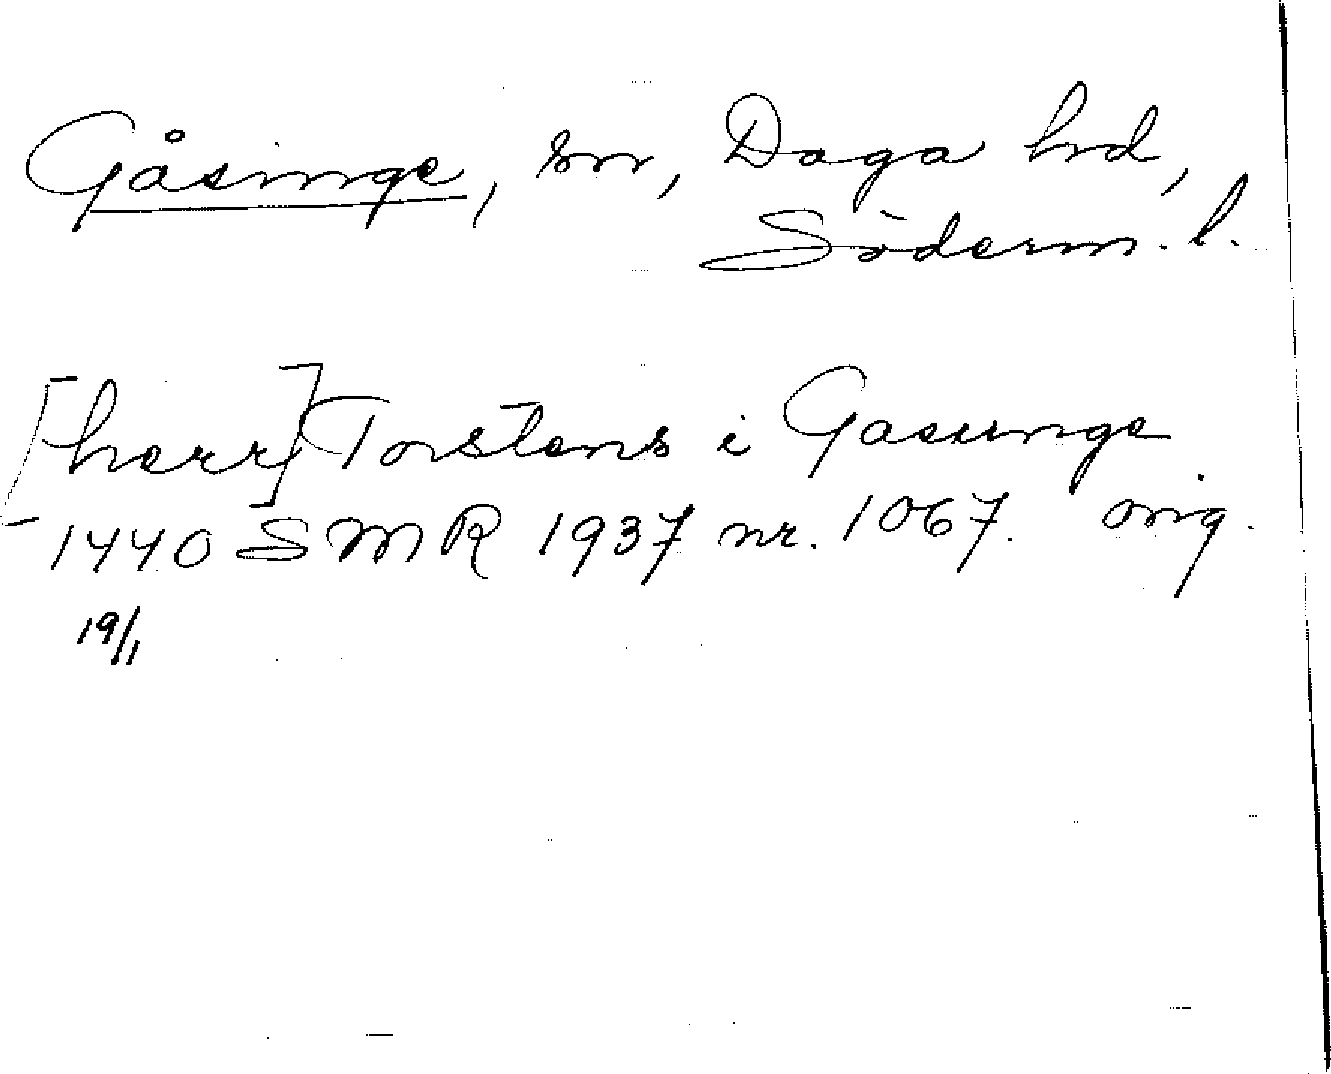 Gåsinge, sn, Daga hd,
Söderm. l.
[herr] Torstens i Gasunge
1440 SMR 1937 nr. 1067. orig.
19/1